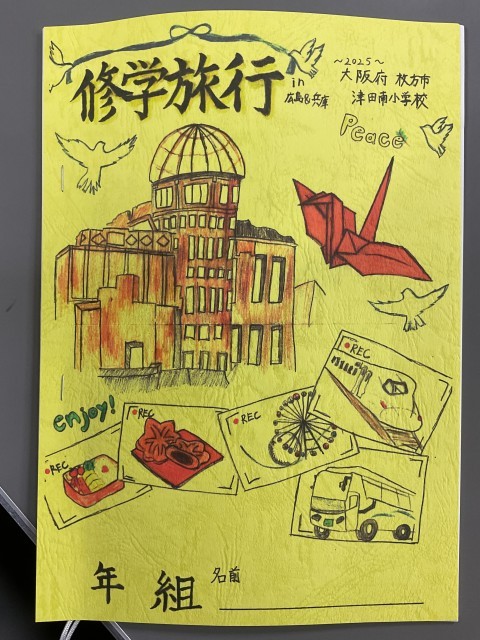 修学旅行
in
広島&兵庫
~2025~
大阪府 枚方市
津田南小学校
Peace
enjoy!
REC
REC
REC
REC
年 組 名前